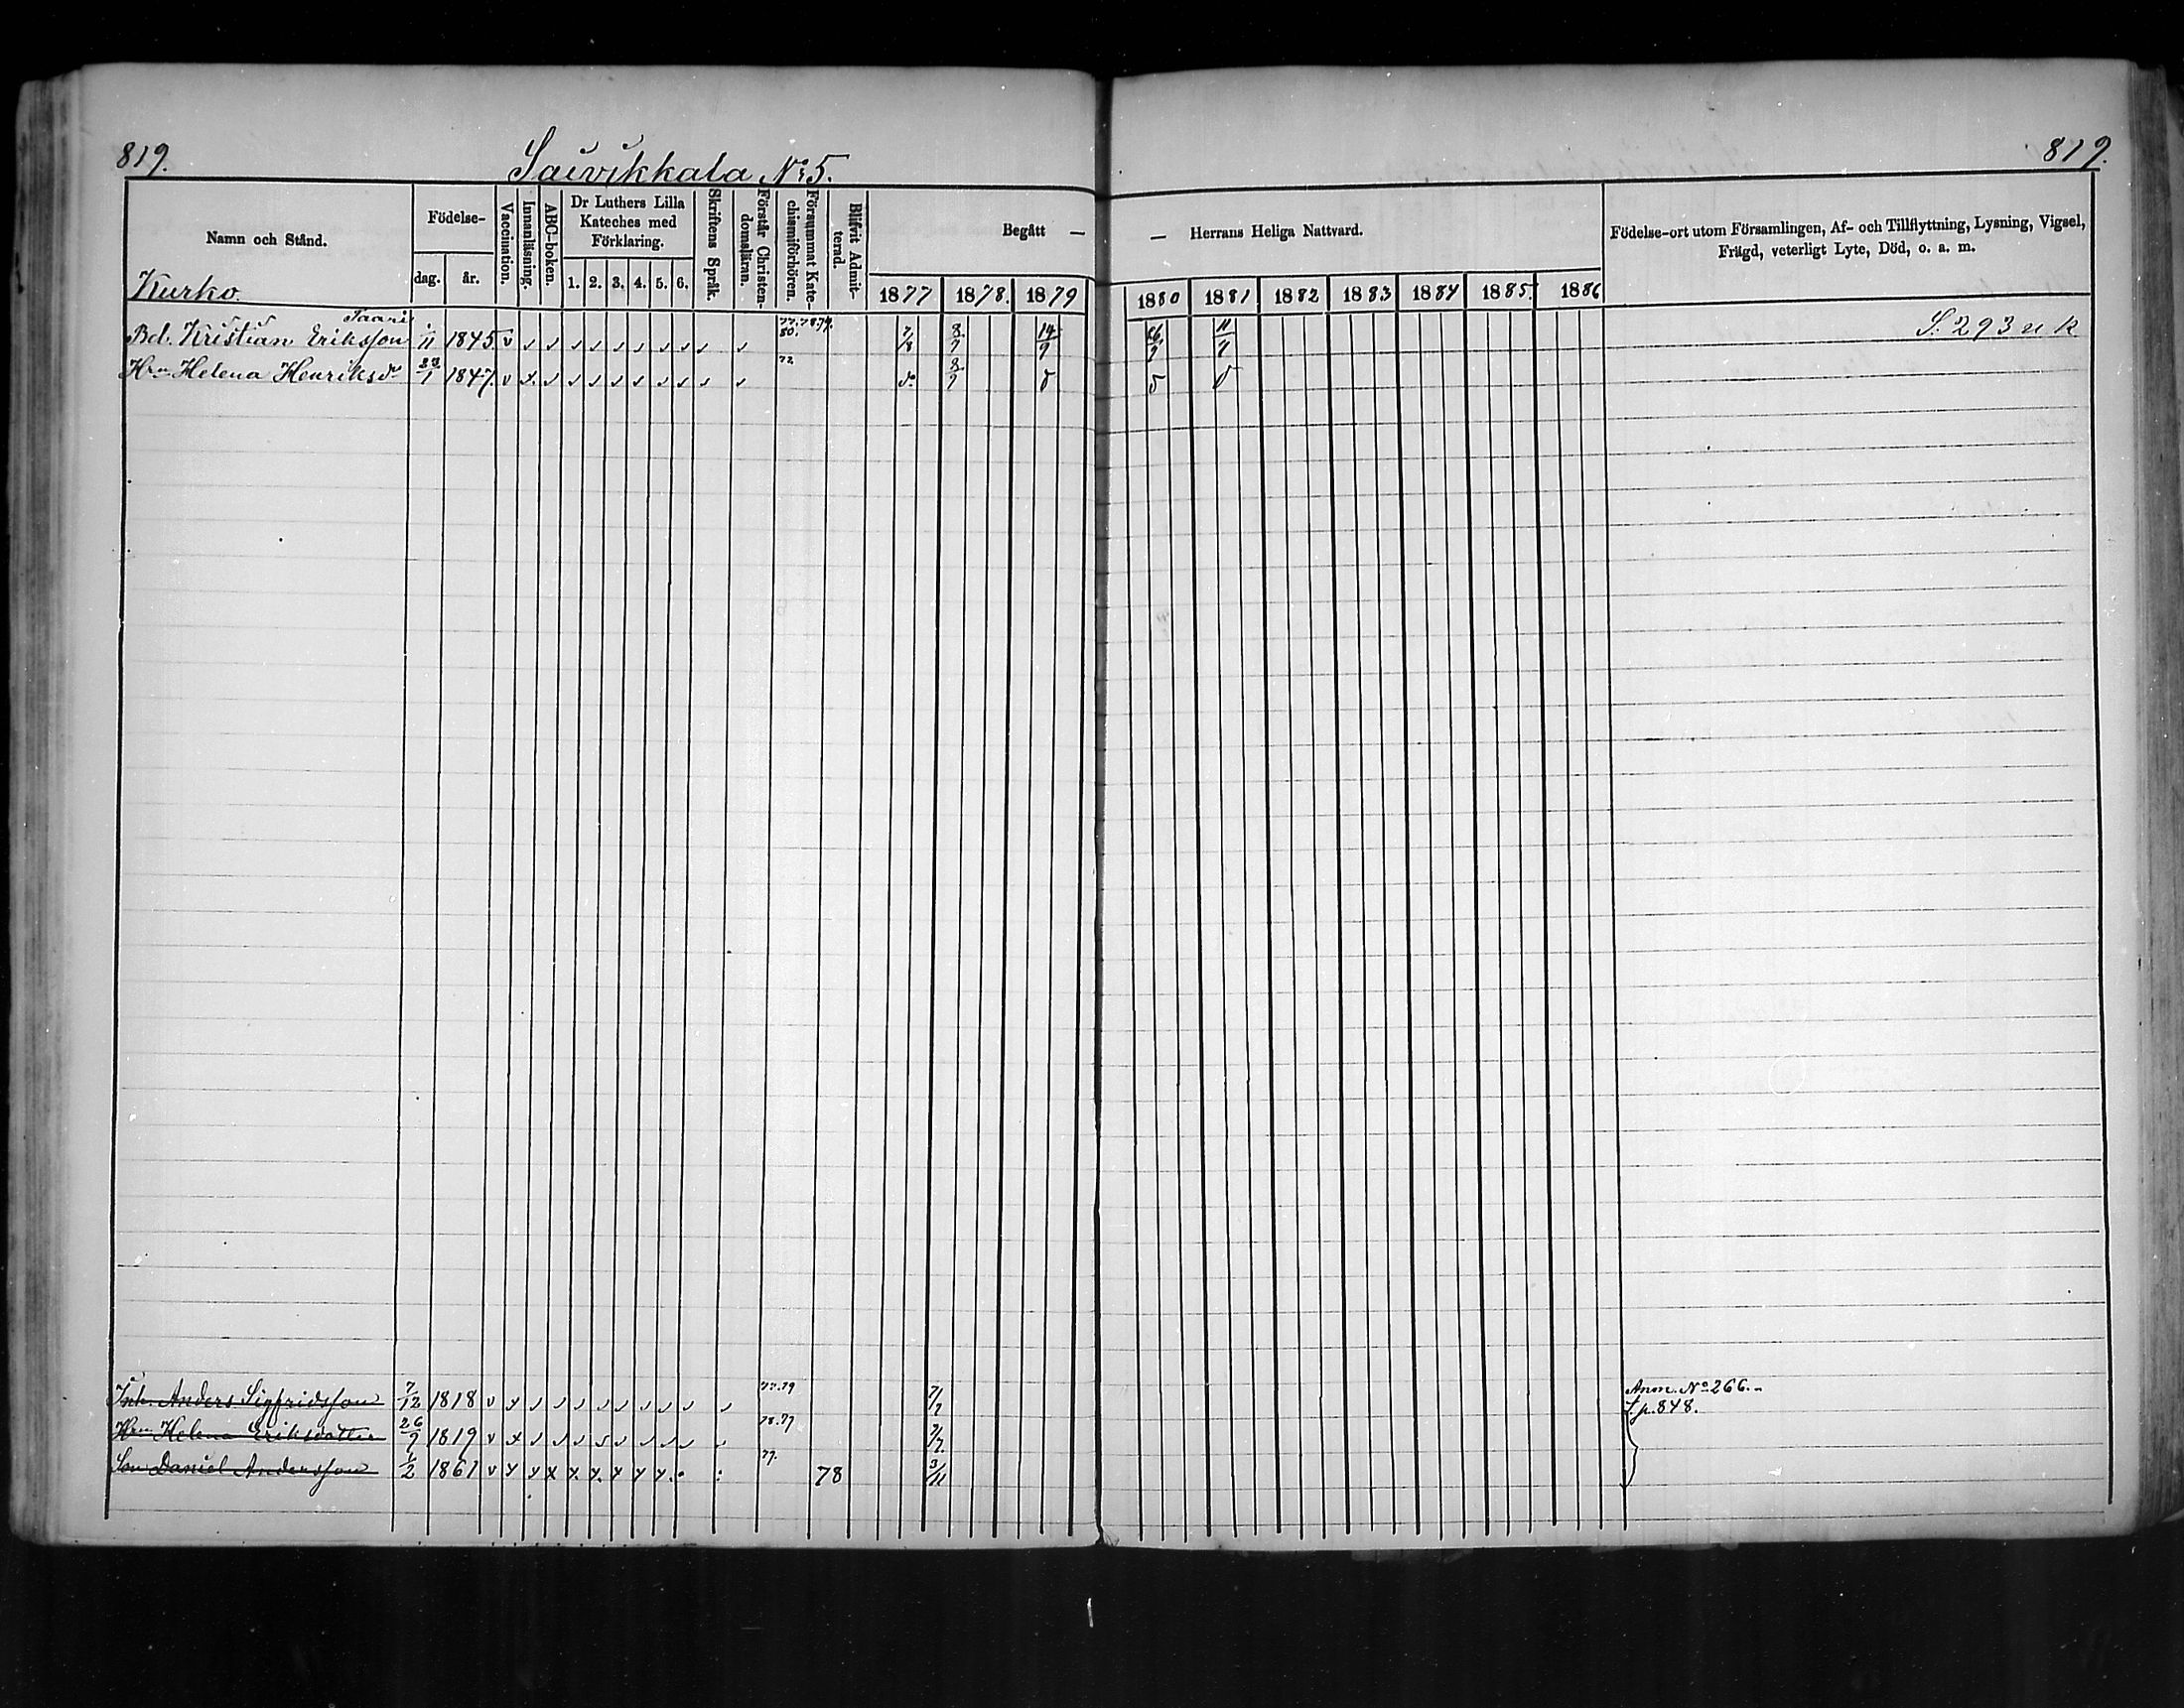 819.
819.
Saivikkala No 5.
Namn och Stånd.
Födelse-
dag.
år.
Vaccination.
Innanläsning.
ABC-boken.
Dr Luthers Lilla
Kateches med
Förklaring.
1. 2. 3. 4. 5. 6.
Skriftens Språk.
Förstår Christen-
domsläran.
Försummat Kate-
chismiförhören.
Blifvit Admit-
terad.
Begått —
— Herrans Heliga Nattvard.
1877 1878. 1879 1880 1881 1882 1883 1884 1885. 1886
Födelse-ort utom Församlingen, Af- och Tillflyttning, Lysning, Vigsel,
Frägd, veterligt Lyte, Död, o. a. m.
Kurko.
Saari
Bd. Kristian Eriksson 1/11 1845. v 77. 78. 79. 80. 7/8 8/9 14/9 26/9 11/9 S. 293 n k
Hru Helena Henriksdr 1847. v x 72 do 8/9
Inh. Anders Sigfridsson 7/12 1818 v x 77. 79 7/7 Anm. No 266.
f. p. 848.
Hru Helena Eriksdotter 26/9 1819 v x 78. 79 7/7
Son Daniel Andersson 1/2 1861 v 77. 78 3/11